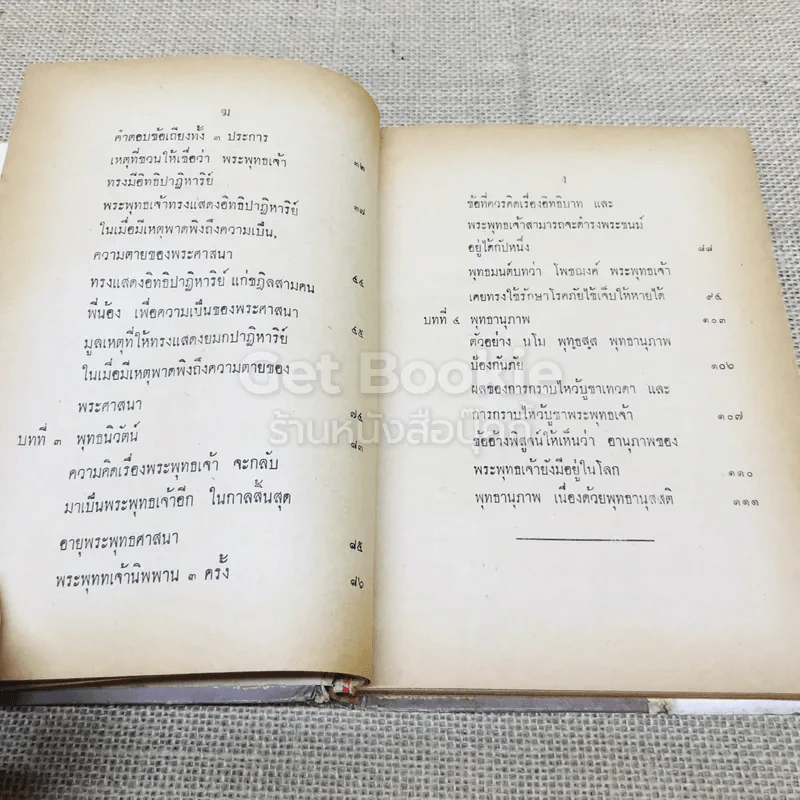 ฆ
คำตอบข้อเถียงทั้ง ๓ ประการ
เหตุที่ชวนให้เชื่อว่า พระพุทธเจ้า
ทรงมีอิทธิปาฏิหาริย์ ๓๒
พระพุทธเจ้าทรงแสดงอิทธิปาฏิหาริย์ ๓๗
ในเมื่อมีเหตุพาดพิงถึงความเป็น,
ความตายของพระศาสนา
ทรงแสดงอิทธิปาฏิหาริย์ แก่ชฎิลสามคน ๔๔
พี่น้อง เพื่อความเป็นของพระศาสนา
มูลเหตุที่ให้ทรงแสดงยมกปาฏิหาริย์ ๔๕
ในเมื่อมีเหตุพาดพิงถึงความตายของ
พระศาสนา ๗๔
บทที่ ๓ พุทธนิวัตน์ ๘๓
ความคิดเรื่องพระพุทธเจ้า จะกลับ
มาเป็นพระพุทธเจ้าอีก ในกาลสิ้นสุด
อายุพระพุทธศาสนา ๘๕
พระพุทธเจ้านิพพาน ๓ ครั้ง ๘๖
ง
ข้อที่ควรคิดเรื่องอิทธิบาท และ
พระพุทธเจ้าสามารถจะดำรงพระชนม์
อยู่ได้กัปหนึ่ง ๘๘
พุทธมนต์บทว่า โพชฌงค์ พระพุทธเจ้า
เคยทรงใช้รักษาโรคภัยไข้เจ็บให้หายได้ ๙๕
บทที่ ๔ พุทธานุภาพ ๑๐๓
ตัวอย่าง นโม พุทฺธสฺส พุทธานุภาพ
ป้องกันภัย ๑๐๖
ผลของการกราบไหว้บูชาเทวดา และ
การกราบไหว้บูชาพระพุทธเจ้า ๑๐๗
ข้ออ้างพิสูจน์ให้เห็นว่า อานุภาพของ
พระพุทธเจ้ายังมีอยู่ในโลก ๑๑๐
พุทธานุภาพ เนื่องด้วยพุทธานุสสติ ๑๑๑
Get Bookie
ร้านหนังสือบุ๊คกี้